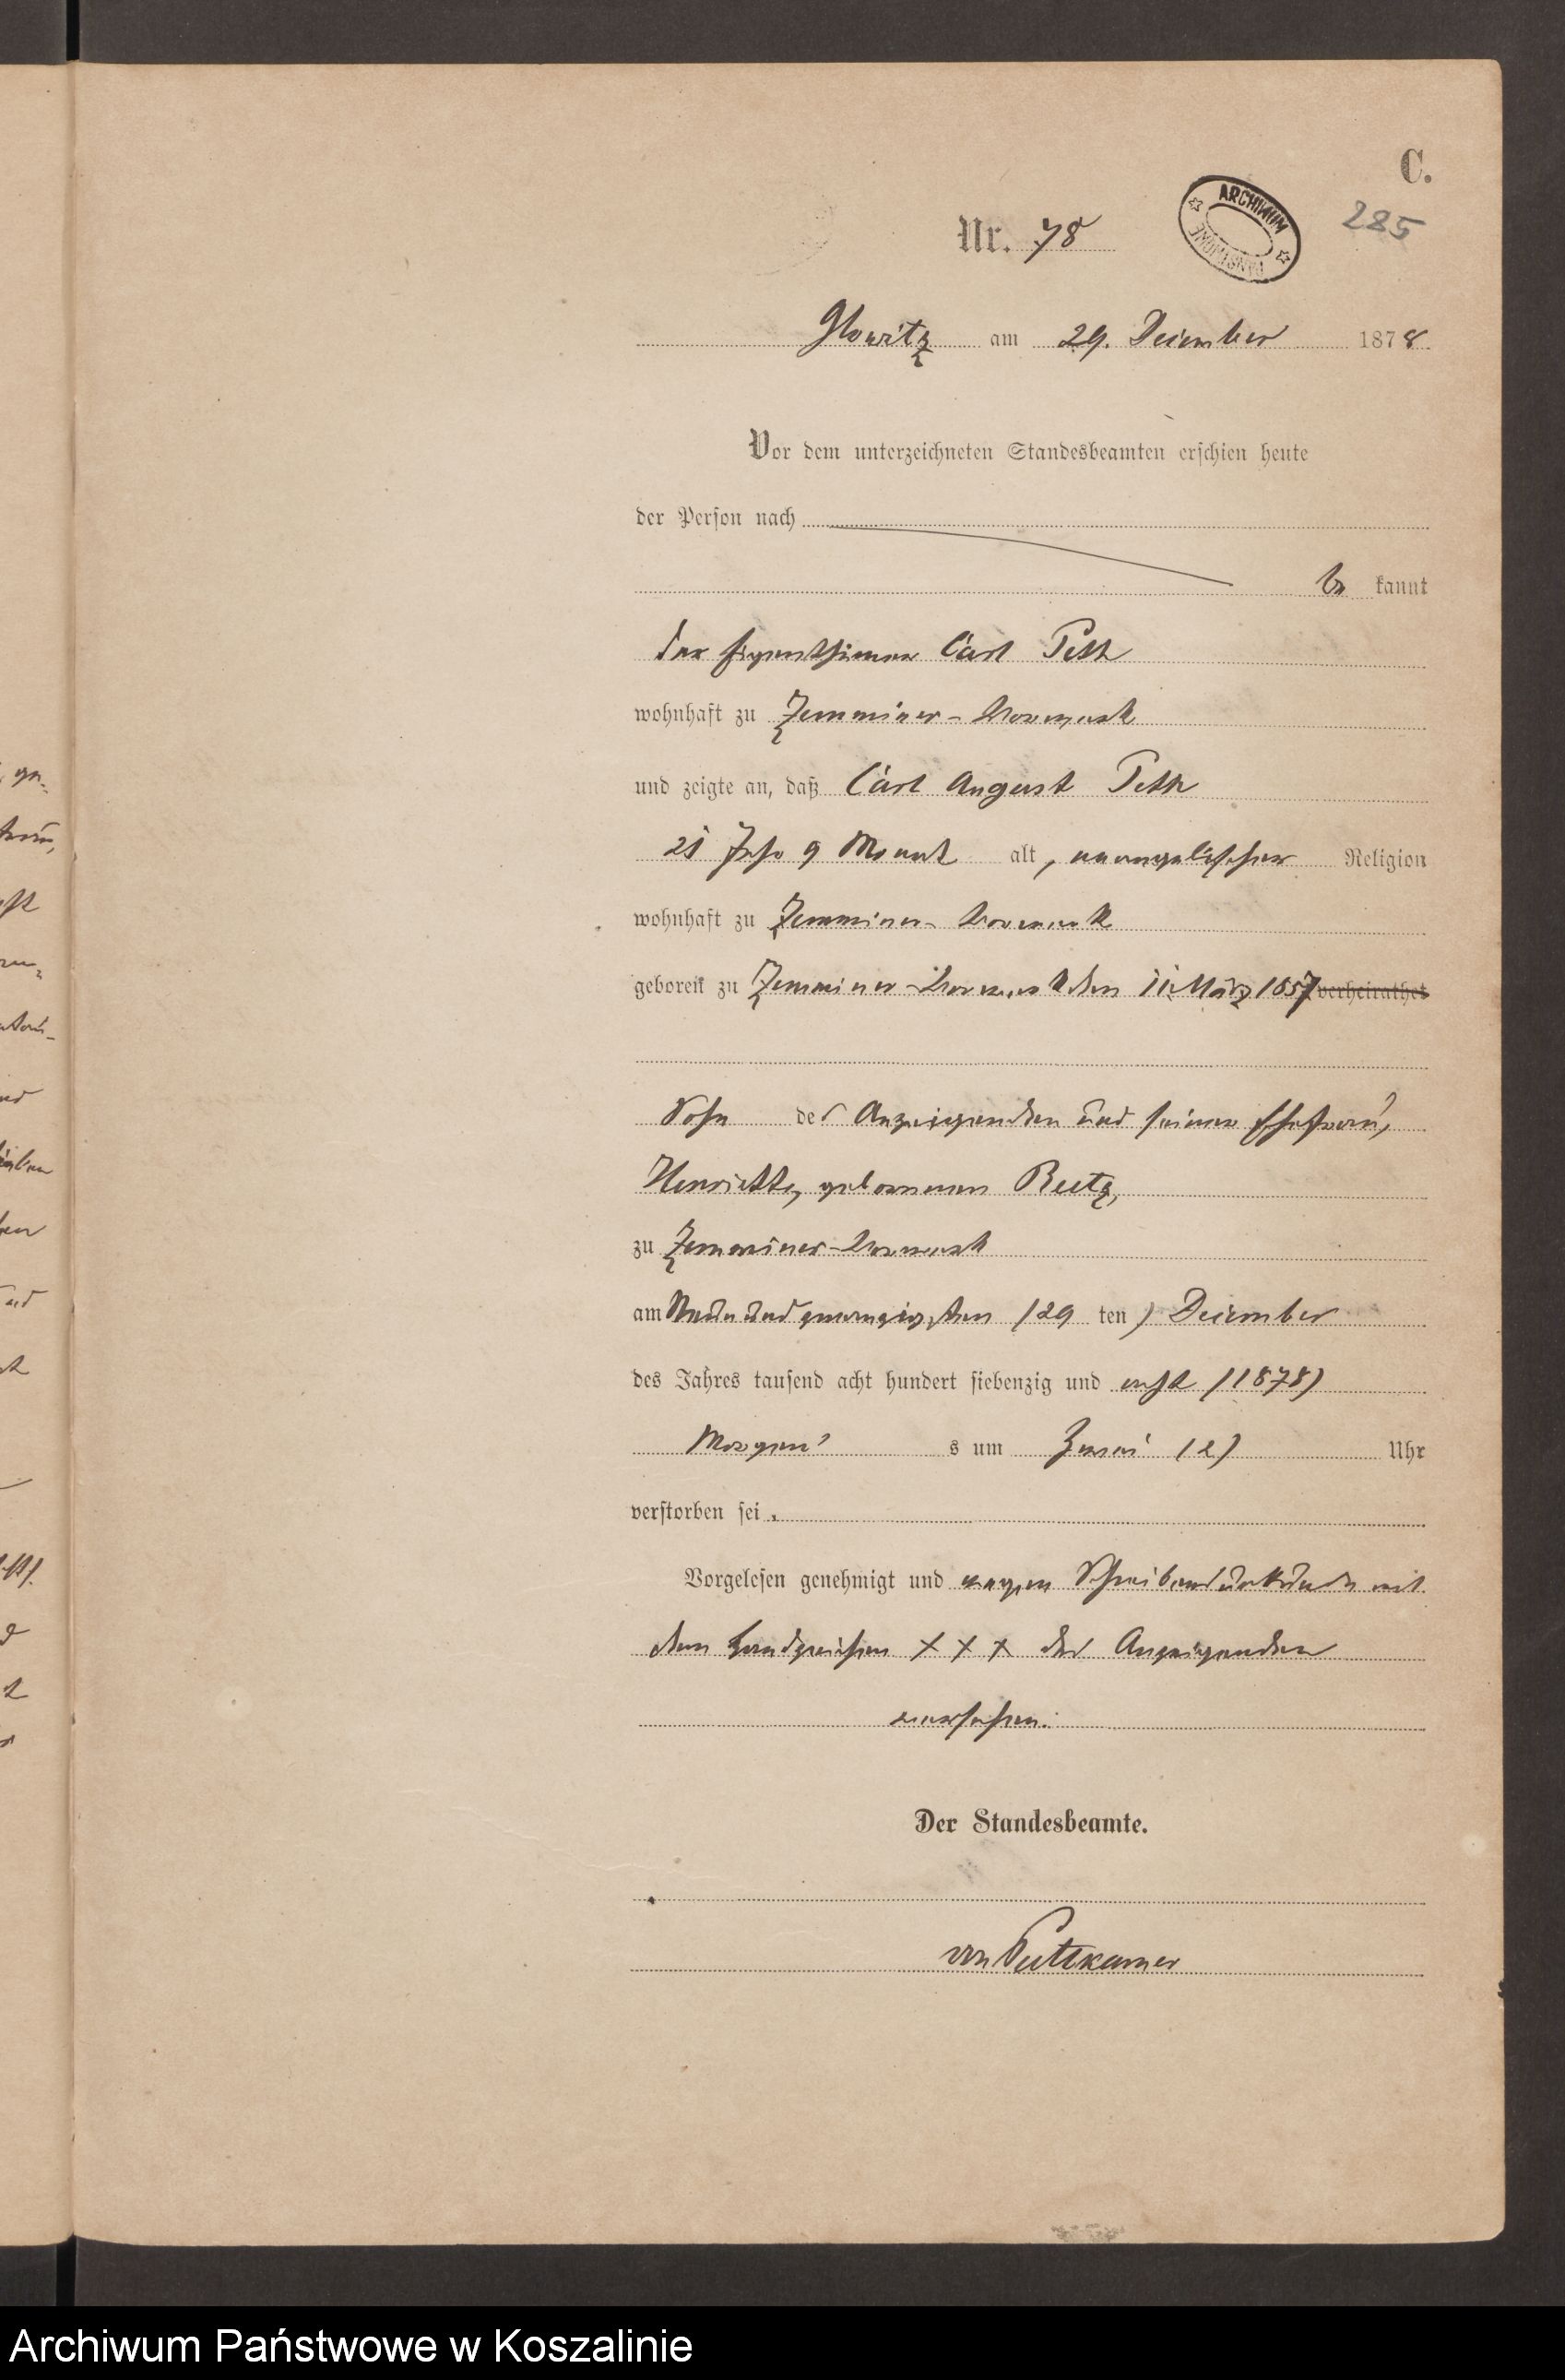 C.
ARCHIWUM PAŃSTWOWE
285
Nr. 78
Glowitz am 29. December 1878.
Vor dem unterzeichneten Standesbeamten erschien heute
der Person nach
be kannt
der Eigenthümer Carl Peth
wohnhaft zu Zemminer-Vorwerk
und zeigte an, daß Carl August Peth
21 Jahr 9 Monat alt, evangelischer Religion
wohnhaft zu Zemminer-Vorwerk
geboren zu Zemminer-Vorwerk den 11. März 1857 verheirathet
Sohn des Anzeigenden und seiner Ehefrau,
Henriette, geborenen Reetz,
zu Zemminer-Vorwerk
am Neun und zwanzigsten (29 ten) December
des Jahres tausend acht hundert siebenzig und acht (1878)
Morgen s um Zwei (2) Uhr
verstorben sei.
Vorgelesen genehmigt und wegen Schreibensunkunde mit
dem Handzeichen X X X des Anzeigenden
versehen.
Der Standesbeamte.
von Puttkamer
Archiwum Państwowe w Koszalinie